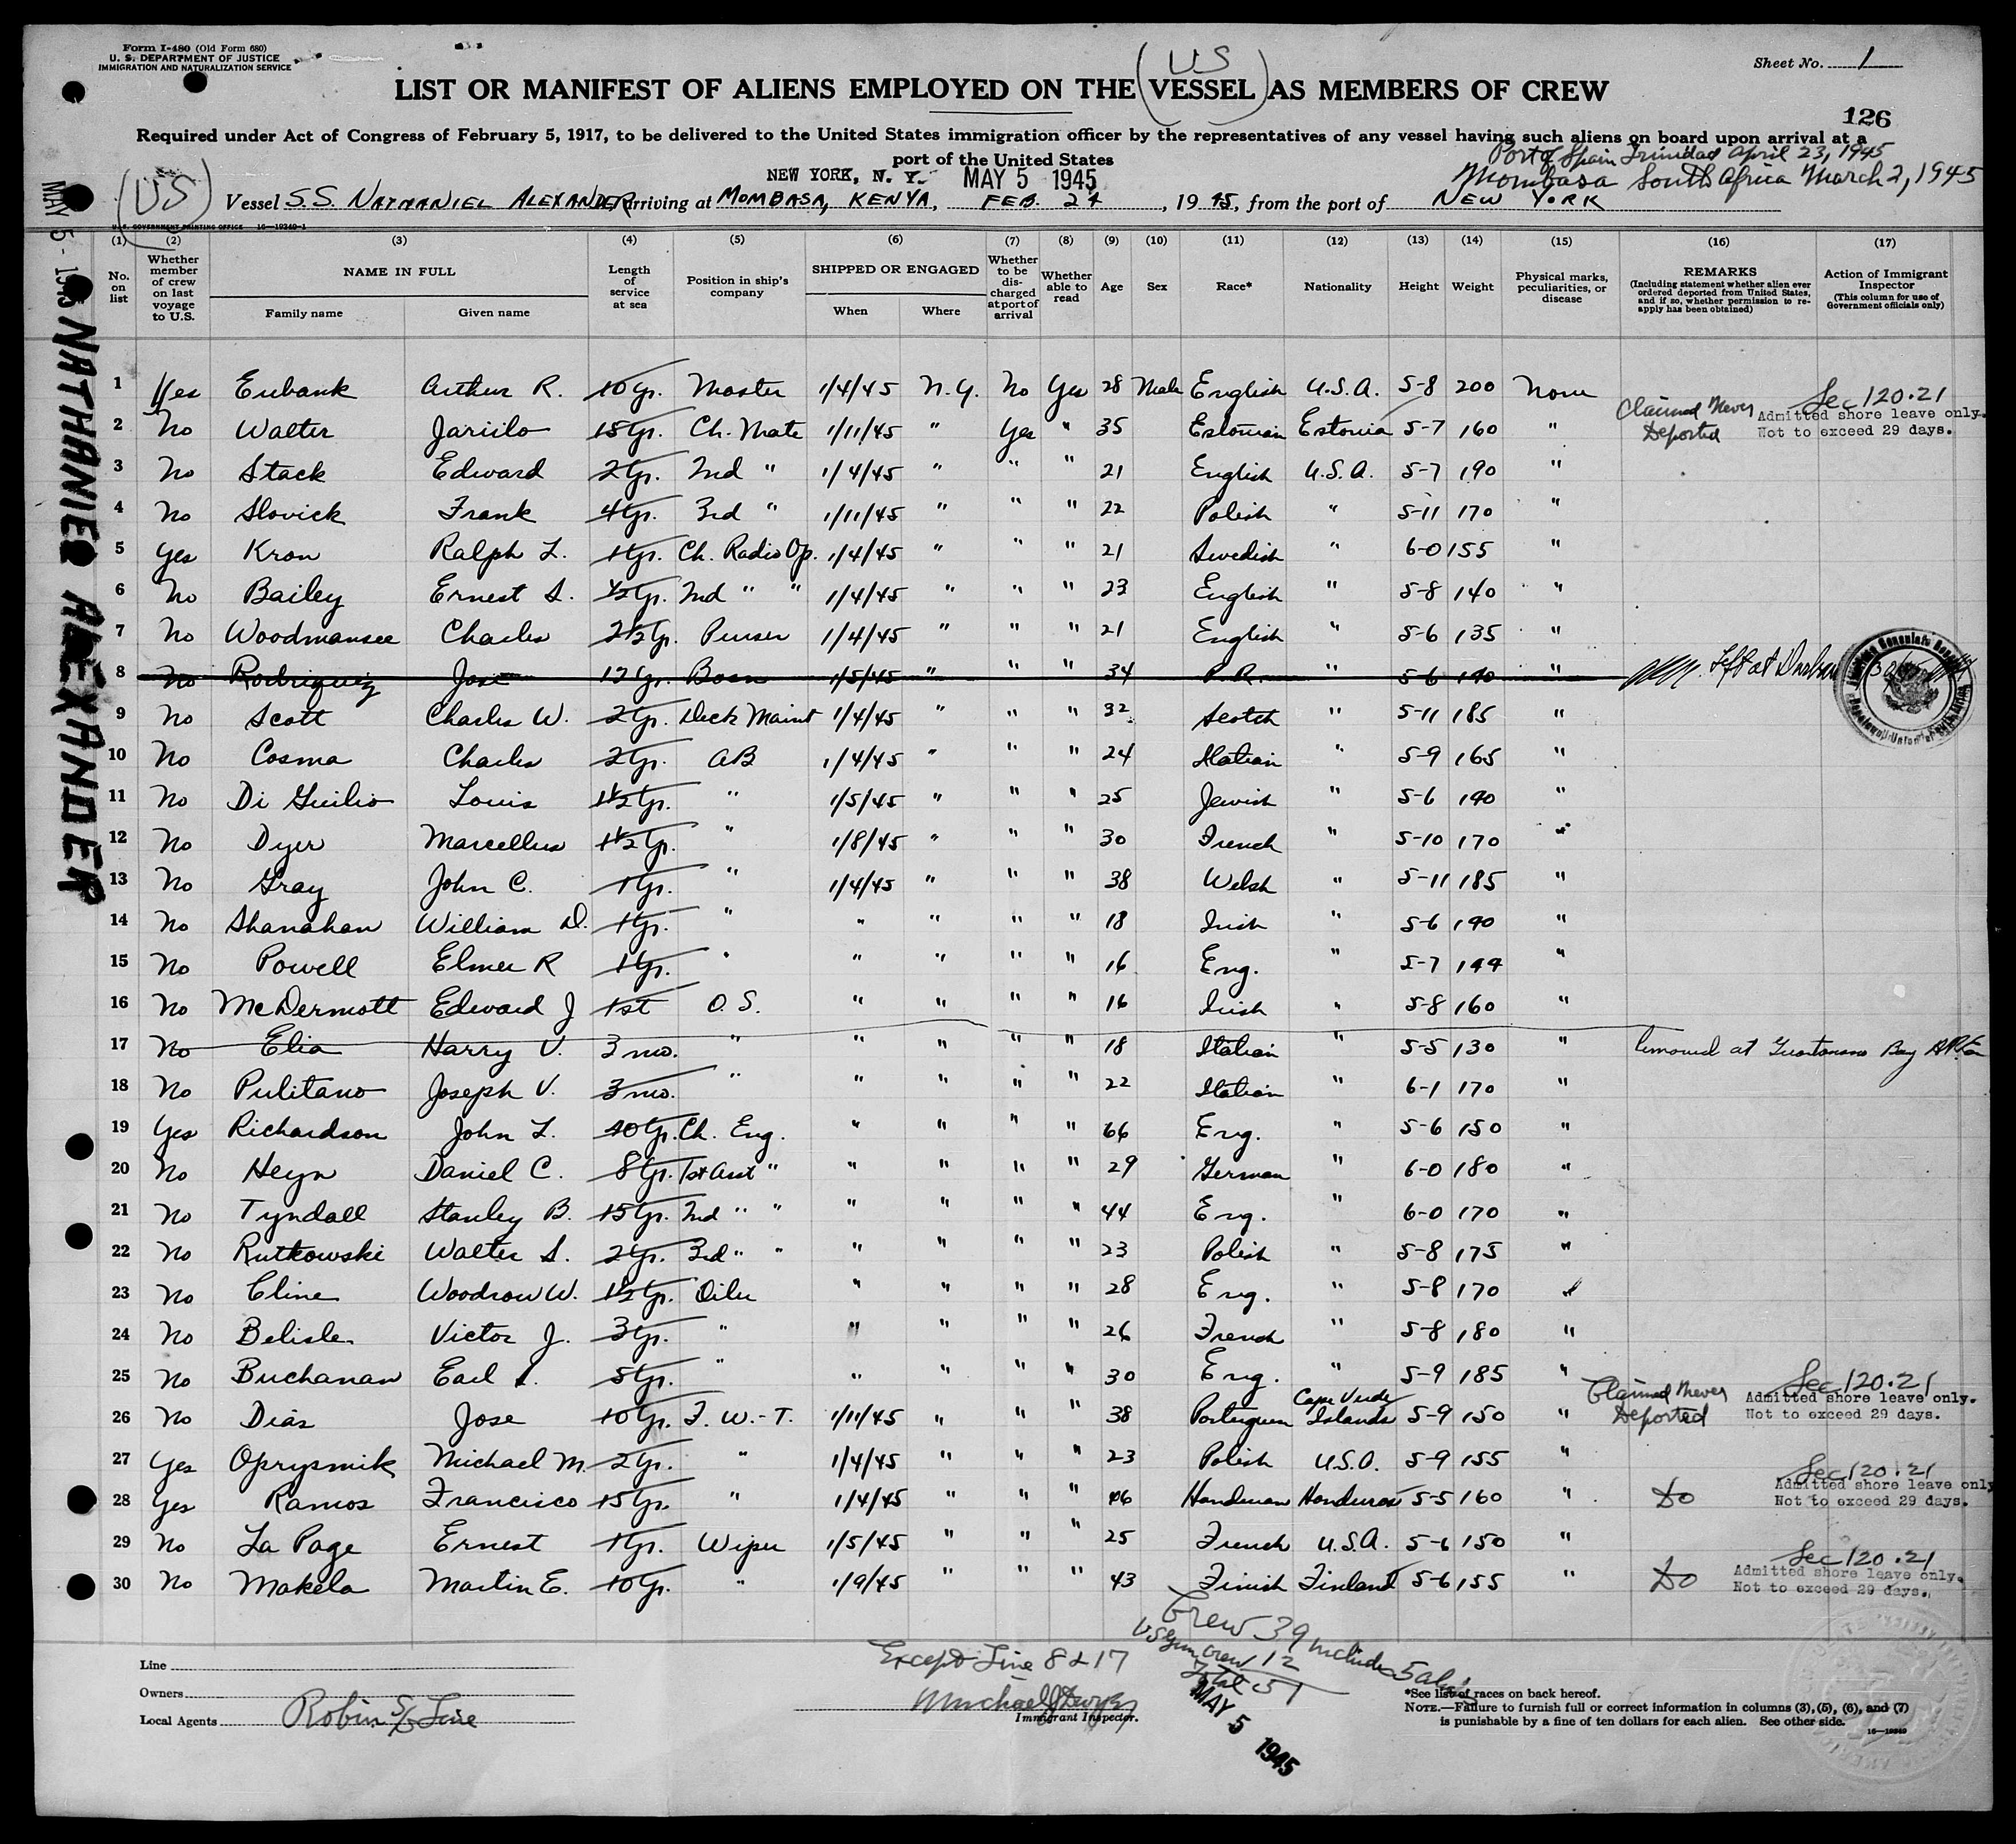 Form I-480 (Old Form 680)
U. S. DEPARTMENT OF JUSTICE
IMMIGRATION AND NATURALIZATION SERVICE
Sheet No. 1
(US)
LIST OR MANIFEST OF ALIENS EMPLOYED ON THE VESSEL AS MEMBERS OF CREW
126
Required under Act of Congress of February 5, 1917, to be delivered to the United States immigration officer by the representatives of any vessel having such aliens on board upon arrival at a
port of the United States
Port of Spain Trinidad April 23, 1945
NEW YORK, N. Y. MAY 5 1945
Mombasa South Africa March 2, 1945
(US) Vessel S.S. NATHANIEL ALEXANDER arriving at MOMBASA, KENYA, FEB. 24, 1945, from the port of NEW YORK
U.S. GOVERNMENT PRINTING OFFICE 16—19240-1
MAY 5 - 1945 NATHANIEL ALEXANDER
(1) (2) (3) (4) (5) (6) (7) (8) (9) (10) (11) (12) (13) (14) (15) (16) (17)
No. on list
Whether member of crew on last voyage to U.S.
NAME IN FULL
Family name Given name
Length of service at sea
Position in ship's company
SHIPPED OR ENGAGED
When Where
Whether to be discharged at port of arrival
Whether able to read
Age Sex Race* Nationality Height Weight
Physical marks, peculiarities, or disease
REMARKS
(Including statement whether alien ever ordered deported from United States, and if so, whether permission to reapply has been obtained)
Action of Immigrant Inspector
(This column for use of Government officials only)
1 Yes Eubank Arthur R. 10 Yr. Master 1/4/45 N.Y. No Yes 28 Male English U.S.A. 5-8 200 None
2 No Walter Jariilo 15 Yr. Ch. Mate 1/11/45 " Yes " 35 Estonian Estonia 5-7 160 " Claimed Never Deported Sec 120.21 Admitted shore leave only. Not to exceed 29 days.
3 No Stack Edward 2 Yr. 2nd " 1/4/45 " " " 21 English U.S.A. 5-7 190 "
4 No Slovick Frank 4 Yr. 3rd " 1/11/45 " " " 22 Polish " 5-11 170 "
5 Yes Kron Ralph L. 1 Yr. Ch. Radio Op. 1/4/45 " " " 21 Swedish " 6-0 155 "
6 No Bailey Ernest S. 1/2 Yr. 2nd " " 1/4/45 " " " 23 English " 5-8 140 "
7 No Woodmansee Charles 2 1/2 Yr. Purser 1/4/45 " " " 21 English " 5-6 135 "
8 No Rodriquez José 12 Yr. Bosn 1/5/45 " " " 34 P.R. " 5-6 140 " Left at Durban
9 No Scott Charles W. 2 Yr. Deck Maint 1/4/45 " " " 32 Scotch " 5-11 185 "
10 No Cosma Charles 2 Yr. AB 1/4/45 " " " 24 Italian " 5-9 165 "
11 No Di Guilio Louis 1 1/2 Yr. " 1/5/45 " " " 25 Jewish " 5-6 190 "
12 No Dyer Marcellus 1 1/2 Yr. " 1/8/45 " " " 30 French " 5-10 170 "
13 No Gray John C. 1 Yr. " 1/4/45 " " " 38 Welsh " 5-11 185 "
14 No Shanahan William D. 1 Yr. " " " " " 18 Irish " 5-6 190 "
15 No Powell Elmer R 1 Yr. " " " " " 16 Eng. 5-7 144 "
16 No McDermott Edward J 1st O.S. " " " " 16 Irish " 5-8 160 "
17 No Elia Harry V. 3 mo. " " " " " 18 Italian " 5-5 130 " Removed at Guantanamo Bay
18 No Pulitano Joseph V. 3 mo. " " " " " 22 Italian " 6-1 170 "
19 Yes Richardson John L. 40 Yr. Ch. Eng. " " " " 66 Eng. " 5-6 150 "
20 No Heyn Daniel C. 8 Yr. 1st Asst " " " " " 29 German " 6-0 180 "
21 No Tyndall Stanley B. 15 Yr. 2nd " " " " " " 44 Eng. " 6-0 170 "
22 No Rutkowski Walter S. 2 Yr. 3rd " " " " " " 23 Polish " 5-8 175 "
23 No Cline Woodrow W. 1 1/2 Yr. Oiler " " " " 28 Eng. " 5-8 170 "
24 No Belisle Victor J. 3 Yr. " " " " " 26 French " 5-8 180 "
25 No Buchanan Earl S. 5 Yr. " " " " " 30 Eng. " 5-9 185 "
26 No Dias Jose 10 Yr. F. W.-T. 1/11/45 " " " 38 Portuguese Cape Verde Islands 5-9 150 " Claimed Never Deported Sec 120.21 Admitted shore leave only. Not to exceed 29 days.
27 Yes Oprysmik Michael M. 2 Yr. " 1/4/45 " " " 23 Polish U.S.A. 5-9 155 "
28 Yes Ramos Francisco 15 Yr. " 1/4/45 " " " 46 Honduran Honduras 5-5 160 " Do Sec 120.21 Admitted shore leave only Not to exceed 29 days.
29 No La Page Ernest 1 Yr. Wiper 1/5/45 " " " 25 French U.S.A. 5-6 150 "
30 No Makela Martin E. 10 Yr. " 1/9/45 " " " 43 Finish Finland 5-6 155 " Do Sec 120.21 Admitted shore leave only. Not to exceed 29 days.
Crew 39 includes 5 aliens
US Gun Crew 12
Total 51
MAY 5 1945
Except Line 8 & 17
Immigrant Inspector.
Line
Owners
Local Agents Robin S/S Line
*See list of races on back hereof.
NOTE.—Failure to furnish full or correct information in columns (3), (5), (6), and (7)
is punishable by a fine of ten dollars for each alien. See other side.
16—19240